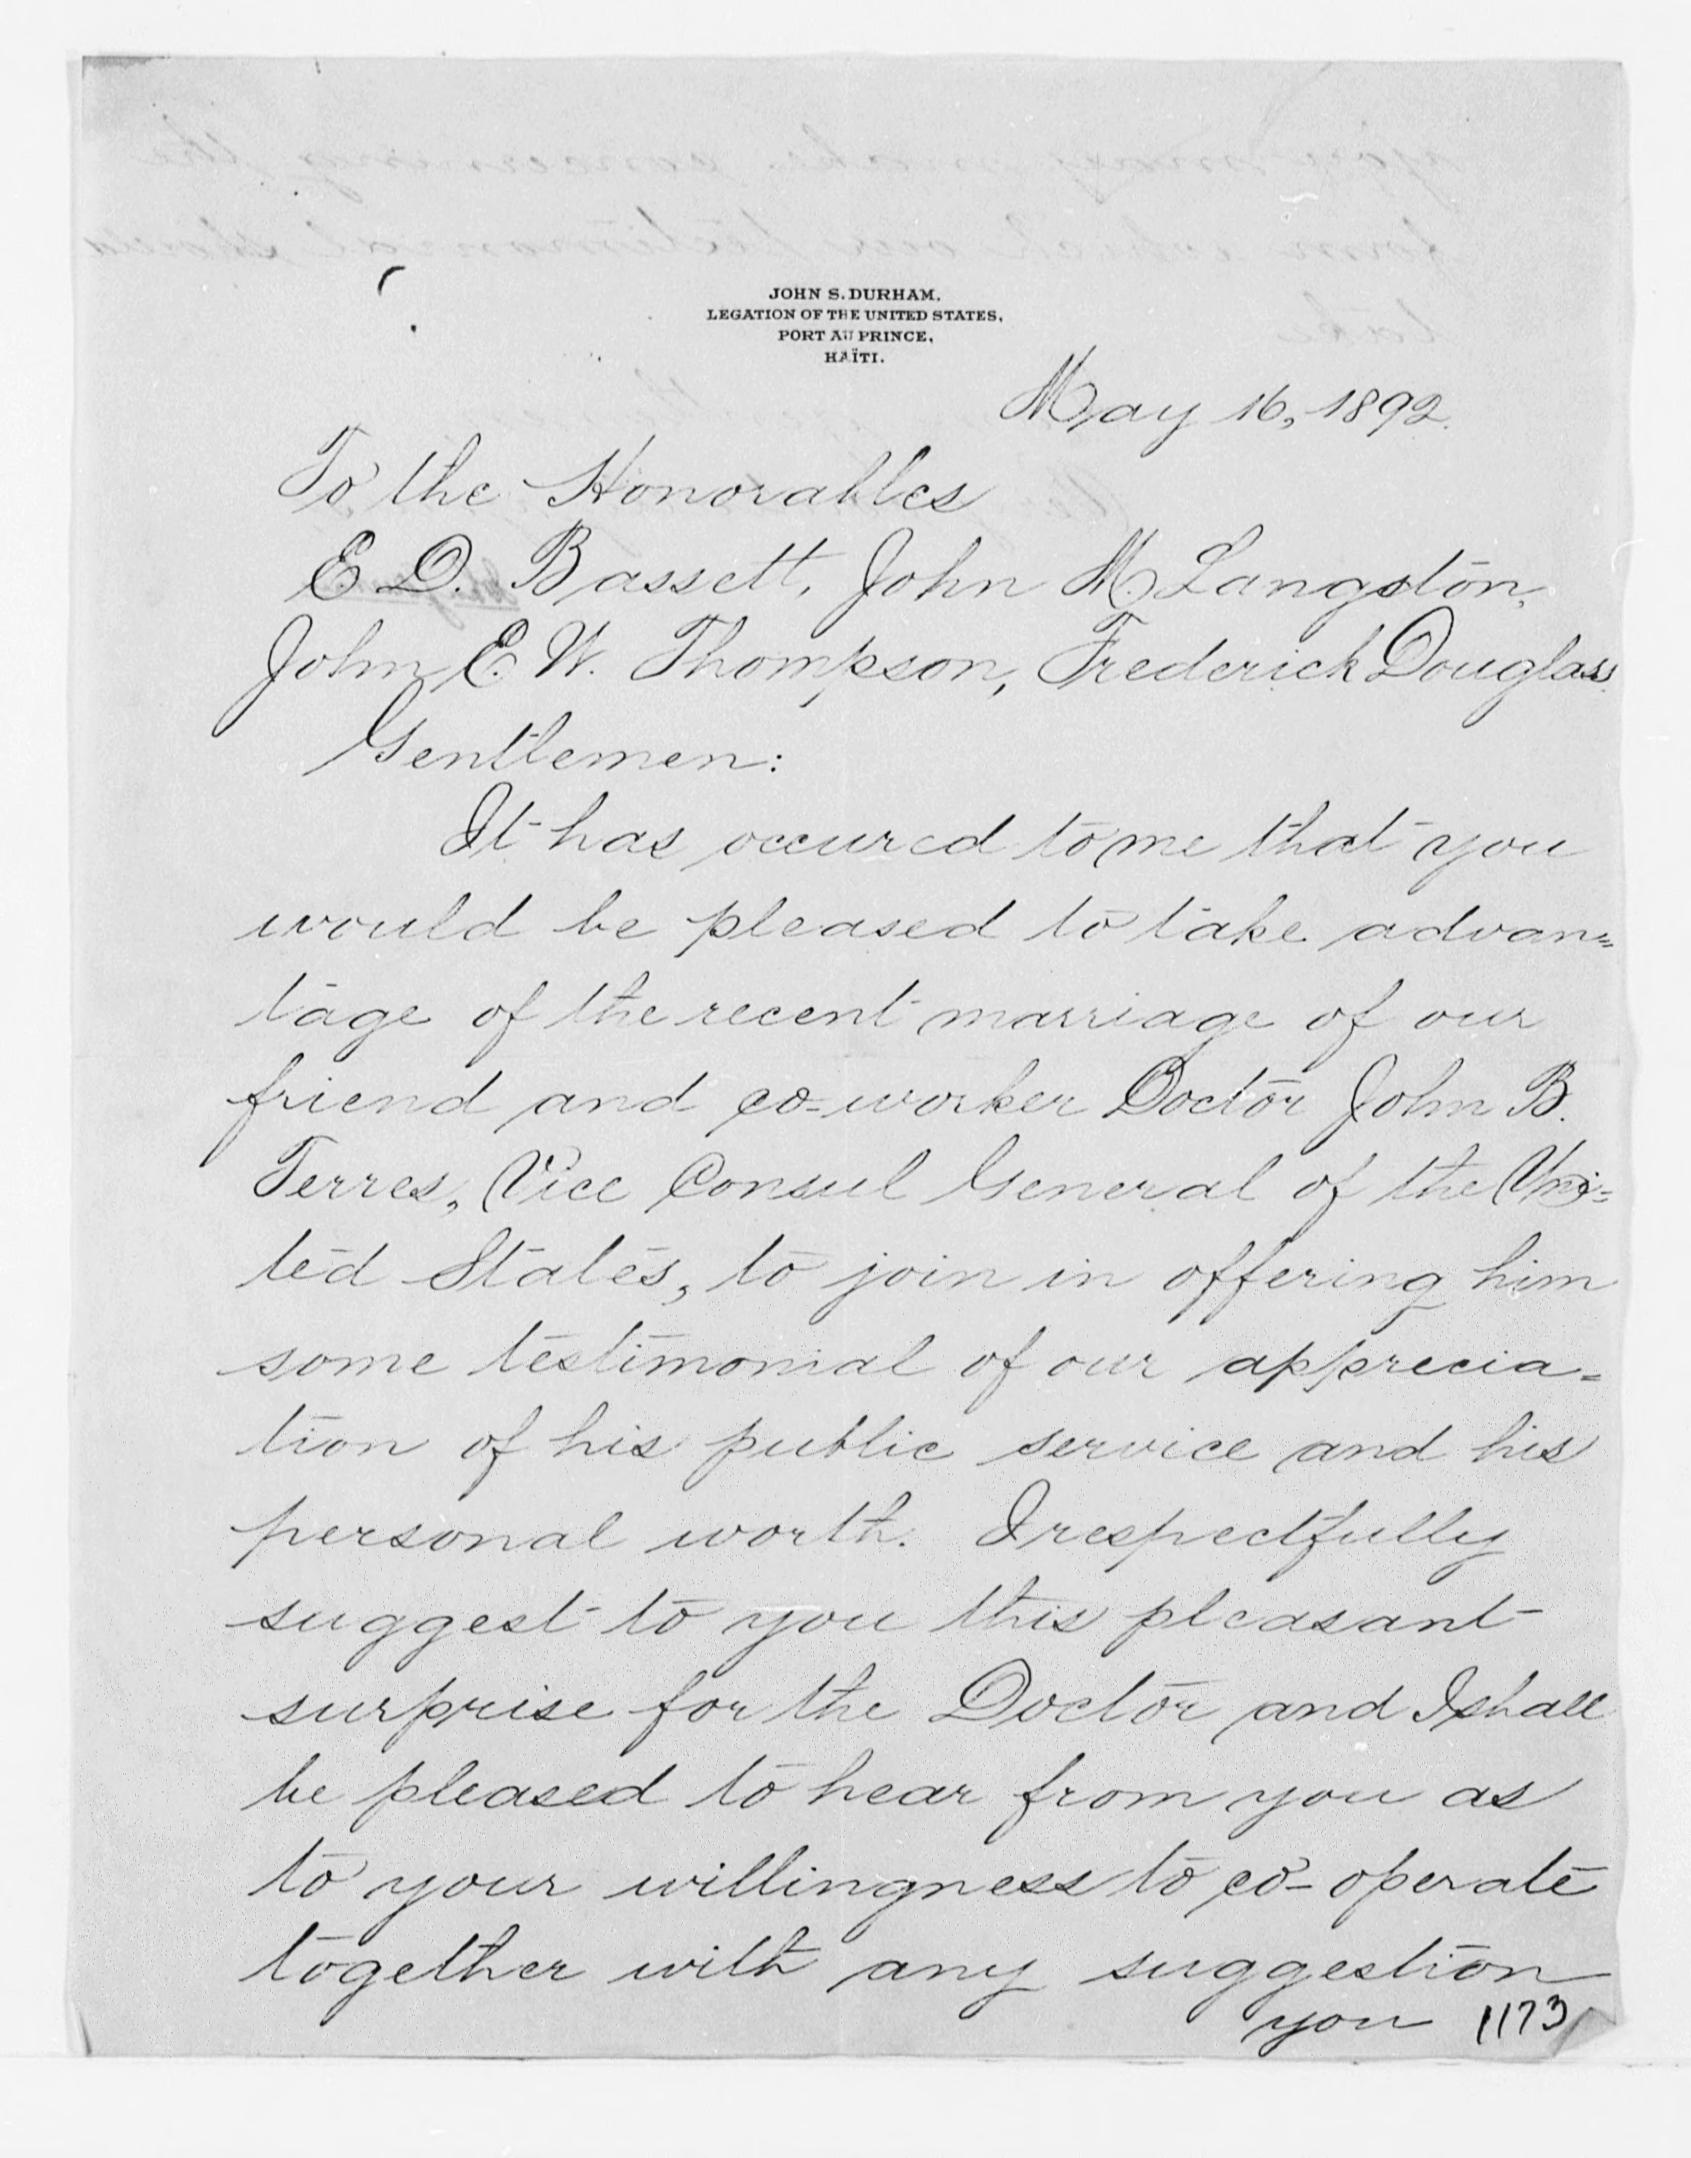 JOHN S. DURHAM,
LEGATION OF THE UNITED STATES,
PORT AU PRINCE,
HAÏTI.
May 16, 1892.
To the Honorables
E. D. Bassett, John M. Langston,
John E. W. Thompson, Frederick Douglass
Gentlemen:
It has occured to me that you
would be pleased to take advan=
tage of the recent marriage of our
friend and co-worker Doctor John B.
Terres, Vice Consul General of the Uni=
ted States, to join in offering him
some testimonial of our apprecia=
tion of his public service and his
personal worth. I respectfully
suggest to you this pleasant
surprise for the Doctor and I shall
be pleased to hear from you as
to your willingness to co-operate
together with any suggestion
you
1173